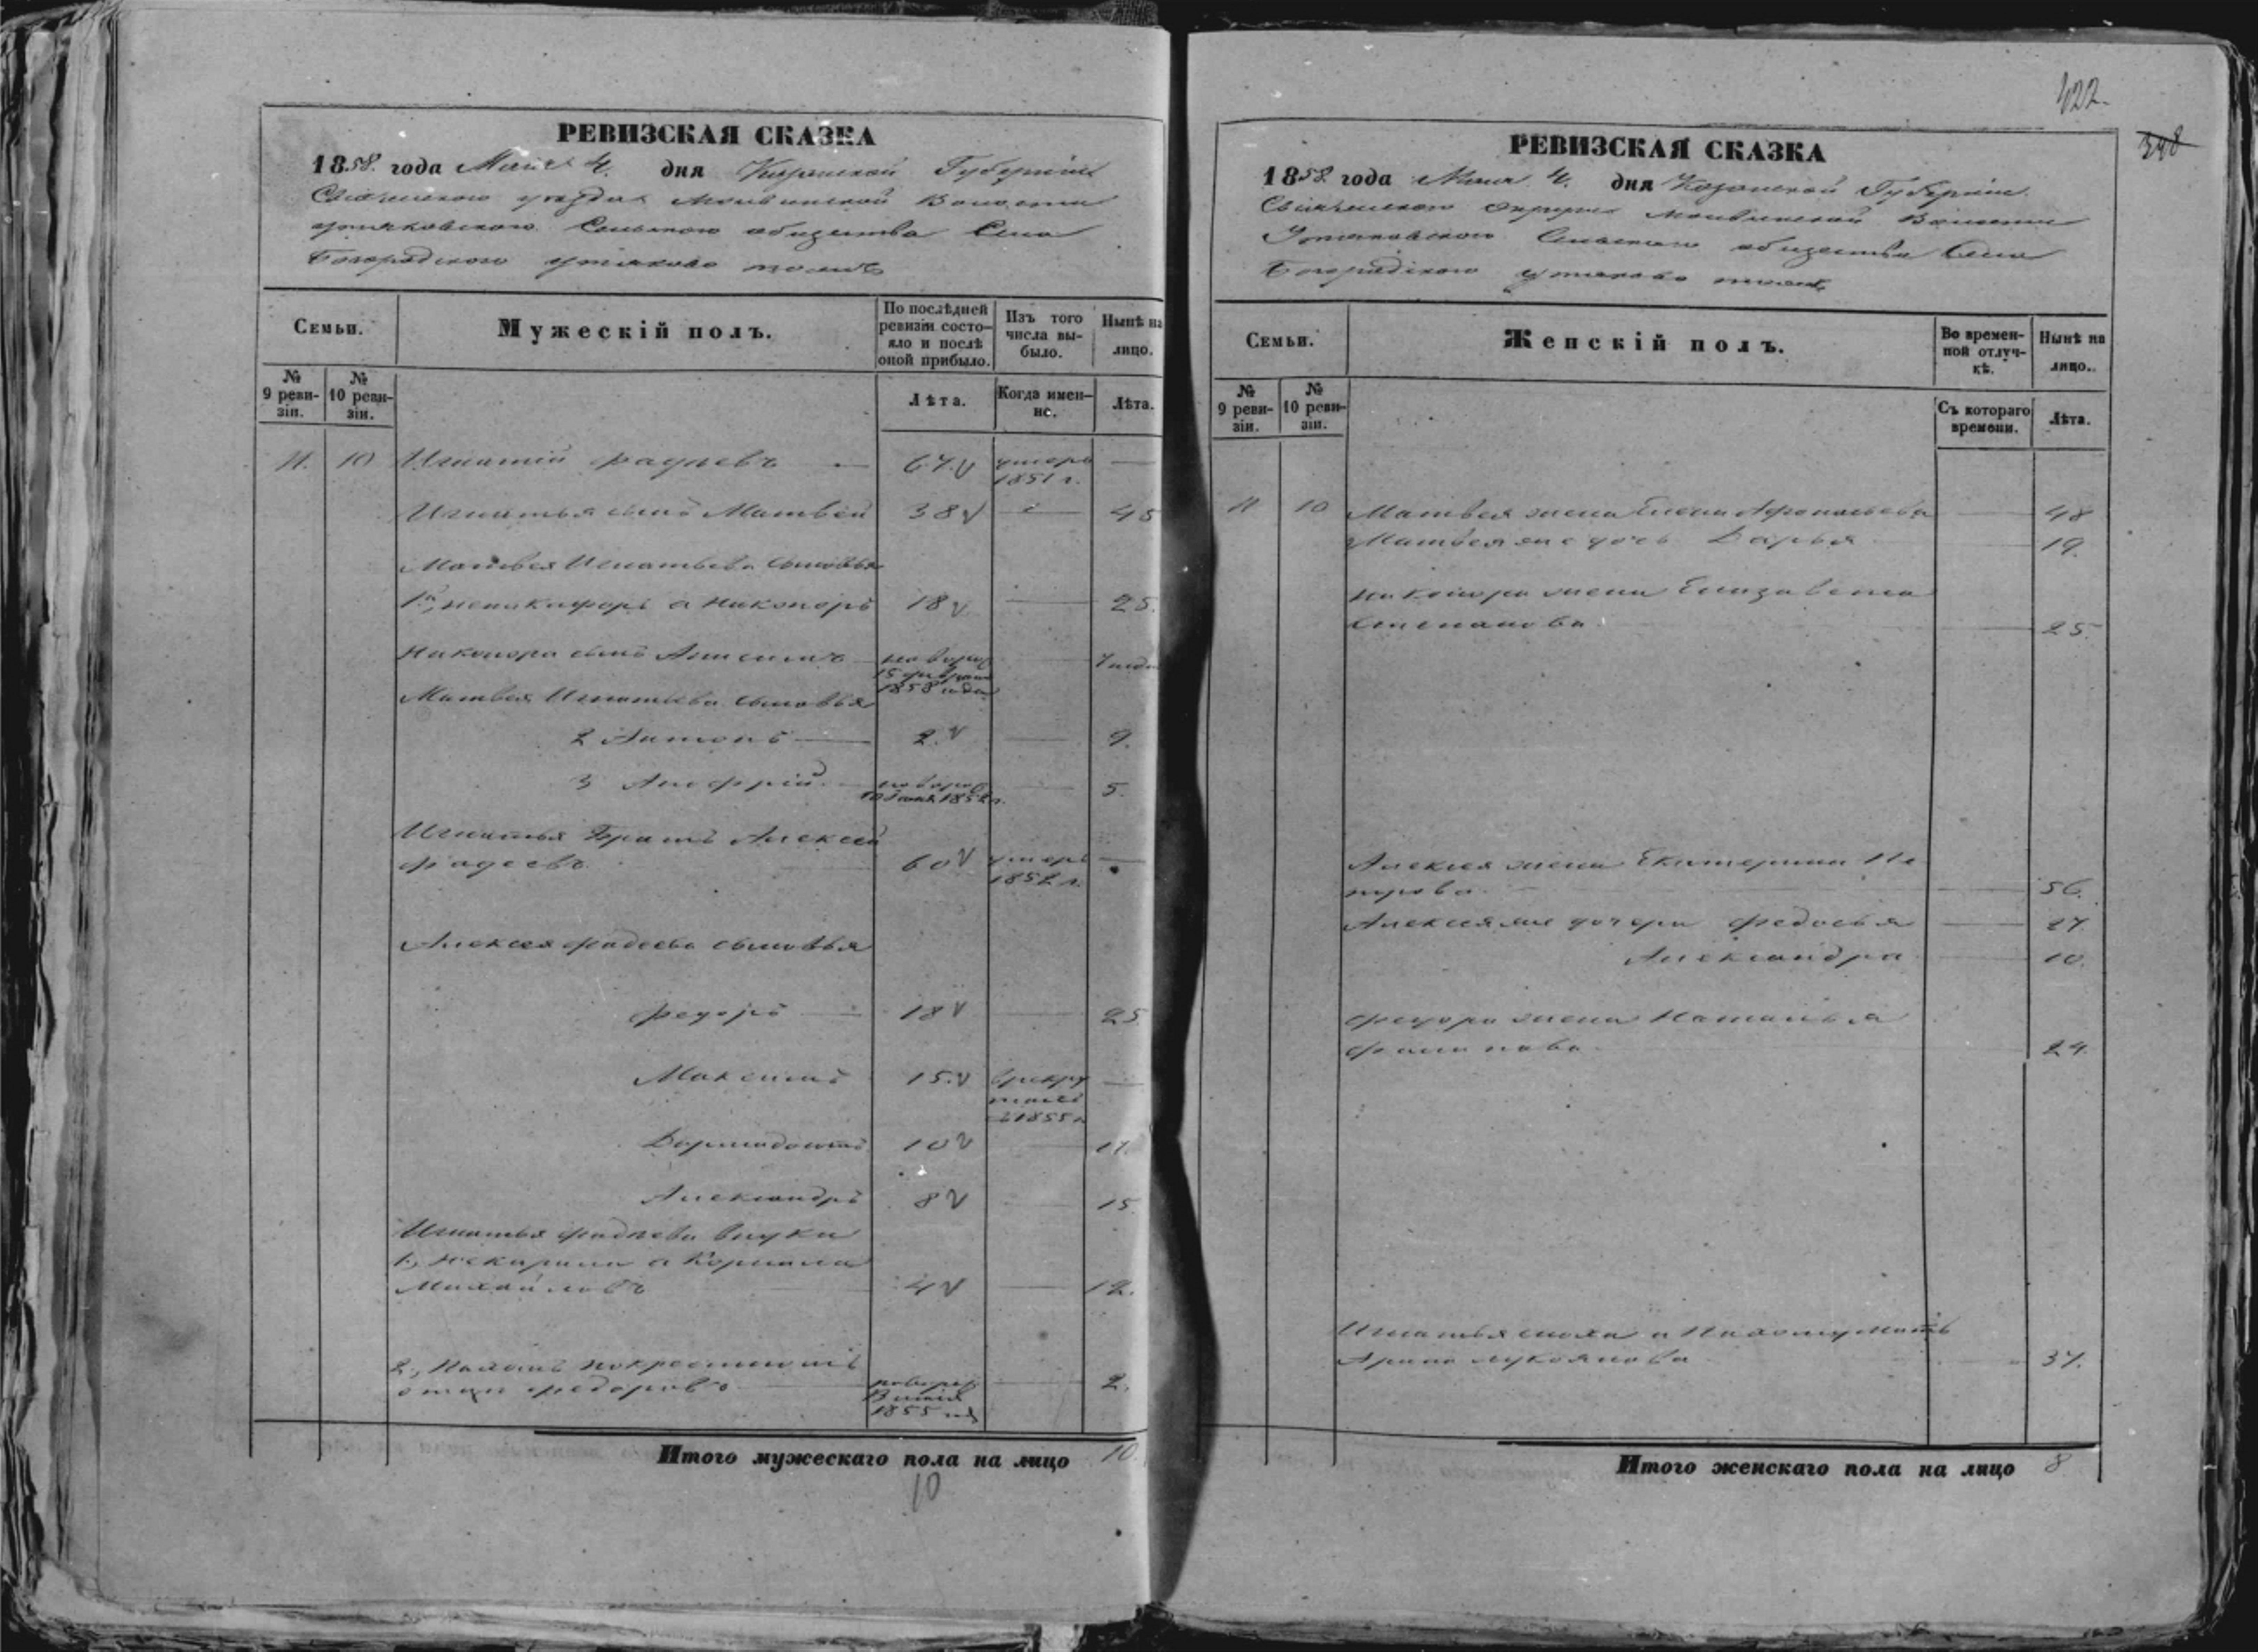 РЕВИЗСКАЯ СКАЗКА
1858. года Маія 4. дня Казанской Губерніи
Свіяжскаго уѣзда Волости
Сельскаго общества Села
Богородскаго тожъ
Семьи.
Мужескій полъ.
По послѣдней ревизіи состо-яло и послѣ оной прибыло.
Изъ того числа вы-было.
Нынѣ на лицо.
№ 9 реви-зіи.
№ 10 реви-зіи.
Лѣта.
Когда имен-но.
Лѣта.
11. 10 Игнатій Фадѣевъ — 67. умеръ 1851 г. —
Игнатья сынъ Матвей 38 — 45
Матвея Игнатьева сыновья
1й, неникифоръ а Никоноръ 18 — 25.
Никонора сынъ новорож 15 февраля 1858 года —
Матвея Игнатьева сыновья
2 Антонъ — 2. — 9.
3 Анофрій — новорож 1852 г. — 5.
Игнатья братъ Алексей
Фадеевъ 60 умеръ 1852 г. —
Алексея Фадеева сыновья
Федоръ — 18 — 25
Максимъ 15. врекру 1855 г. —
10 — 17.
Александръ 8 — 15.
Игнатья Фадѣева внуки
1.,
Михайловъ 4 — 12.
2., покрестному
отцу Федоровъ — новорож 1855 год — 2.
Итого мужескаго пола на лицо 10.
10
422.
348
РЕВИЗСКАЯ СКАЗКА
1858 года Маия 4. дня Казанской Губерніи
Свіяжскаго округа Волости
Сельскаго общества Села
Богородскаго тожъ
Семьи.
Женскій полъ.
Во времен-ной отлуч-кѣ.
Нынѣ на лицо.
№ 9 реви-зіи.
№ 10 реви-зіи.
Съ котораго времени.
Лѣта.
11 10 Матвея жена Елена Афонасьева — 48
Матвея же дочь Дарья — 19.
Никонора жена Елизавета
Степанова. — 25.
Алексея жена Екатерина Пе
трова. — 56.
Алексея же дочери Федосья — 27.
Александра — 10.
Федора жена Наталья
Филипова. — 24.
Игнатья сноха а Пахому мать
Арина Лукоянова — 37.
Итого женскаго пола на лицо 8